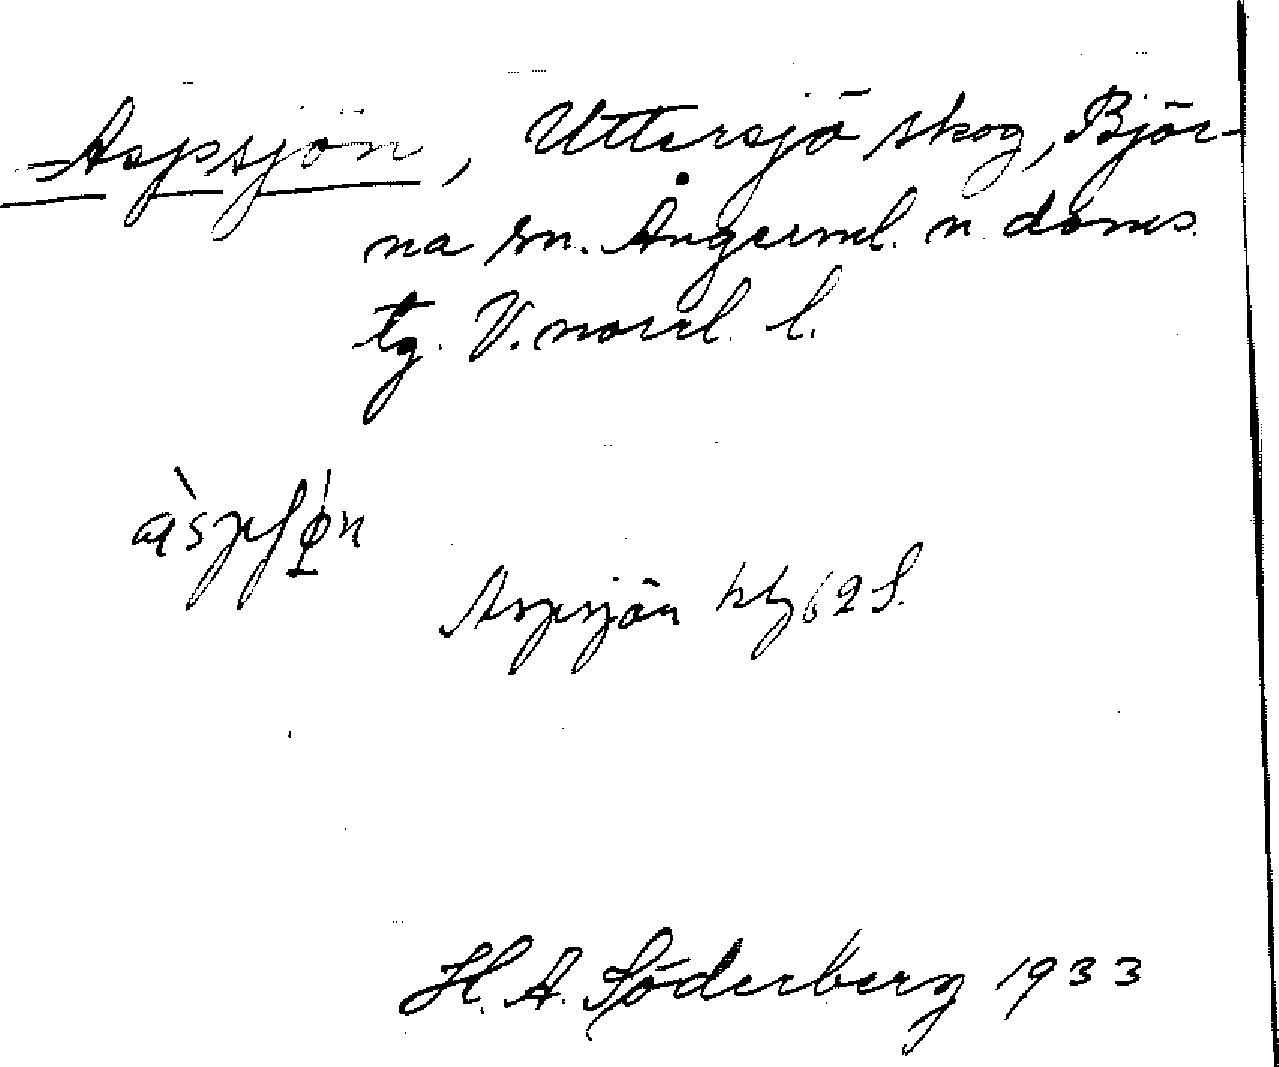 Aspsjön, Uttersjö skog, Björ-
na sn. Ångerml. n. doms.
tg. V. norrl. l.
Aspsjön kbl 62 S.
H. A. Söderberg 1933